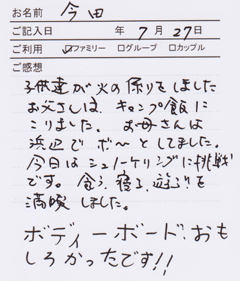 お名前 今田
ご記入日 年 7 月 27 日
ご利用 ☑ファミリー □グループ □カップル
ご感想
子供達が火の係りをしました
お父さんは、キャンプ飯に
こりました。 お母さんは
浜辺でボ〜としてました。
今日はシュノーケリングに挑戦
です。食う、寝る、遊ぶを
満喫しました。
ボディーボード、おも
しろかったです!!